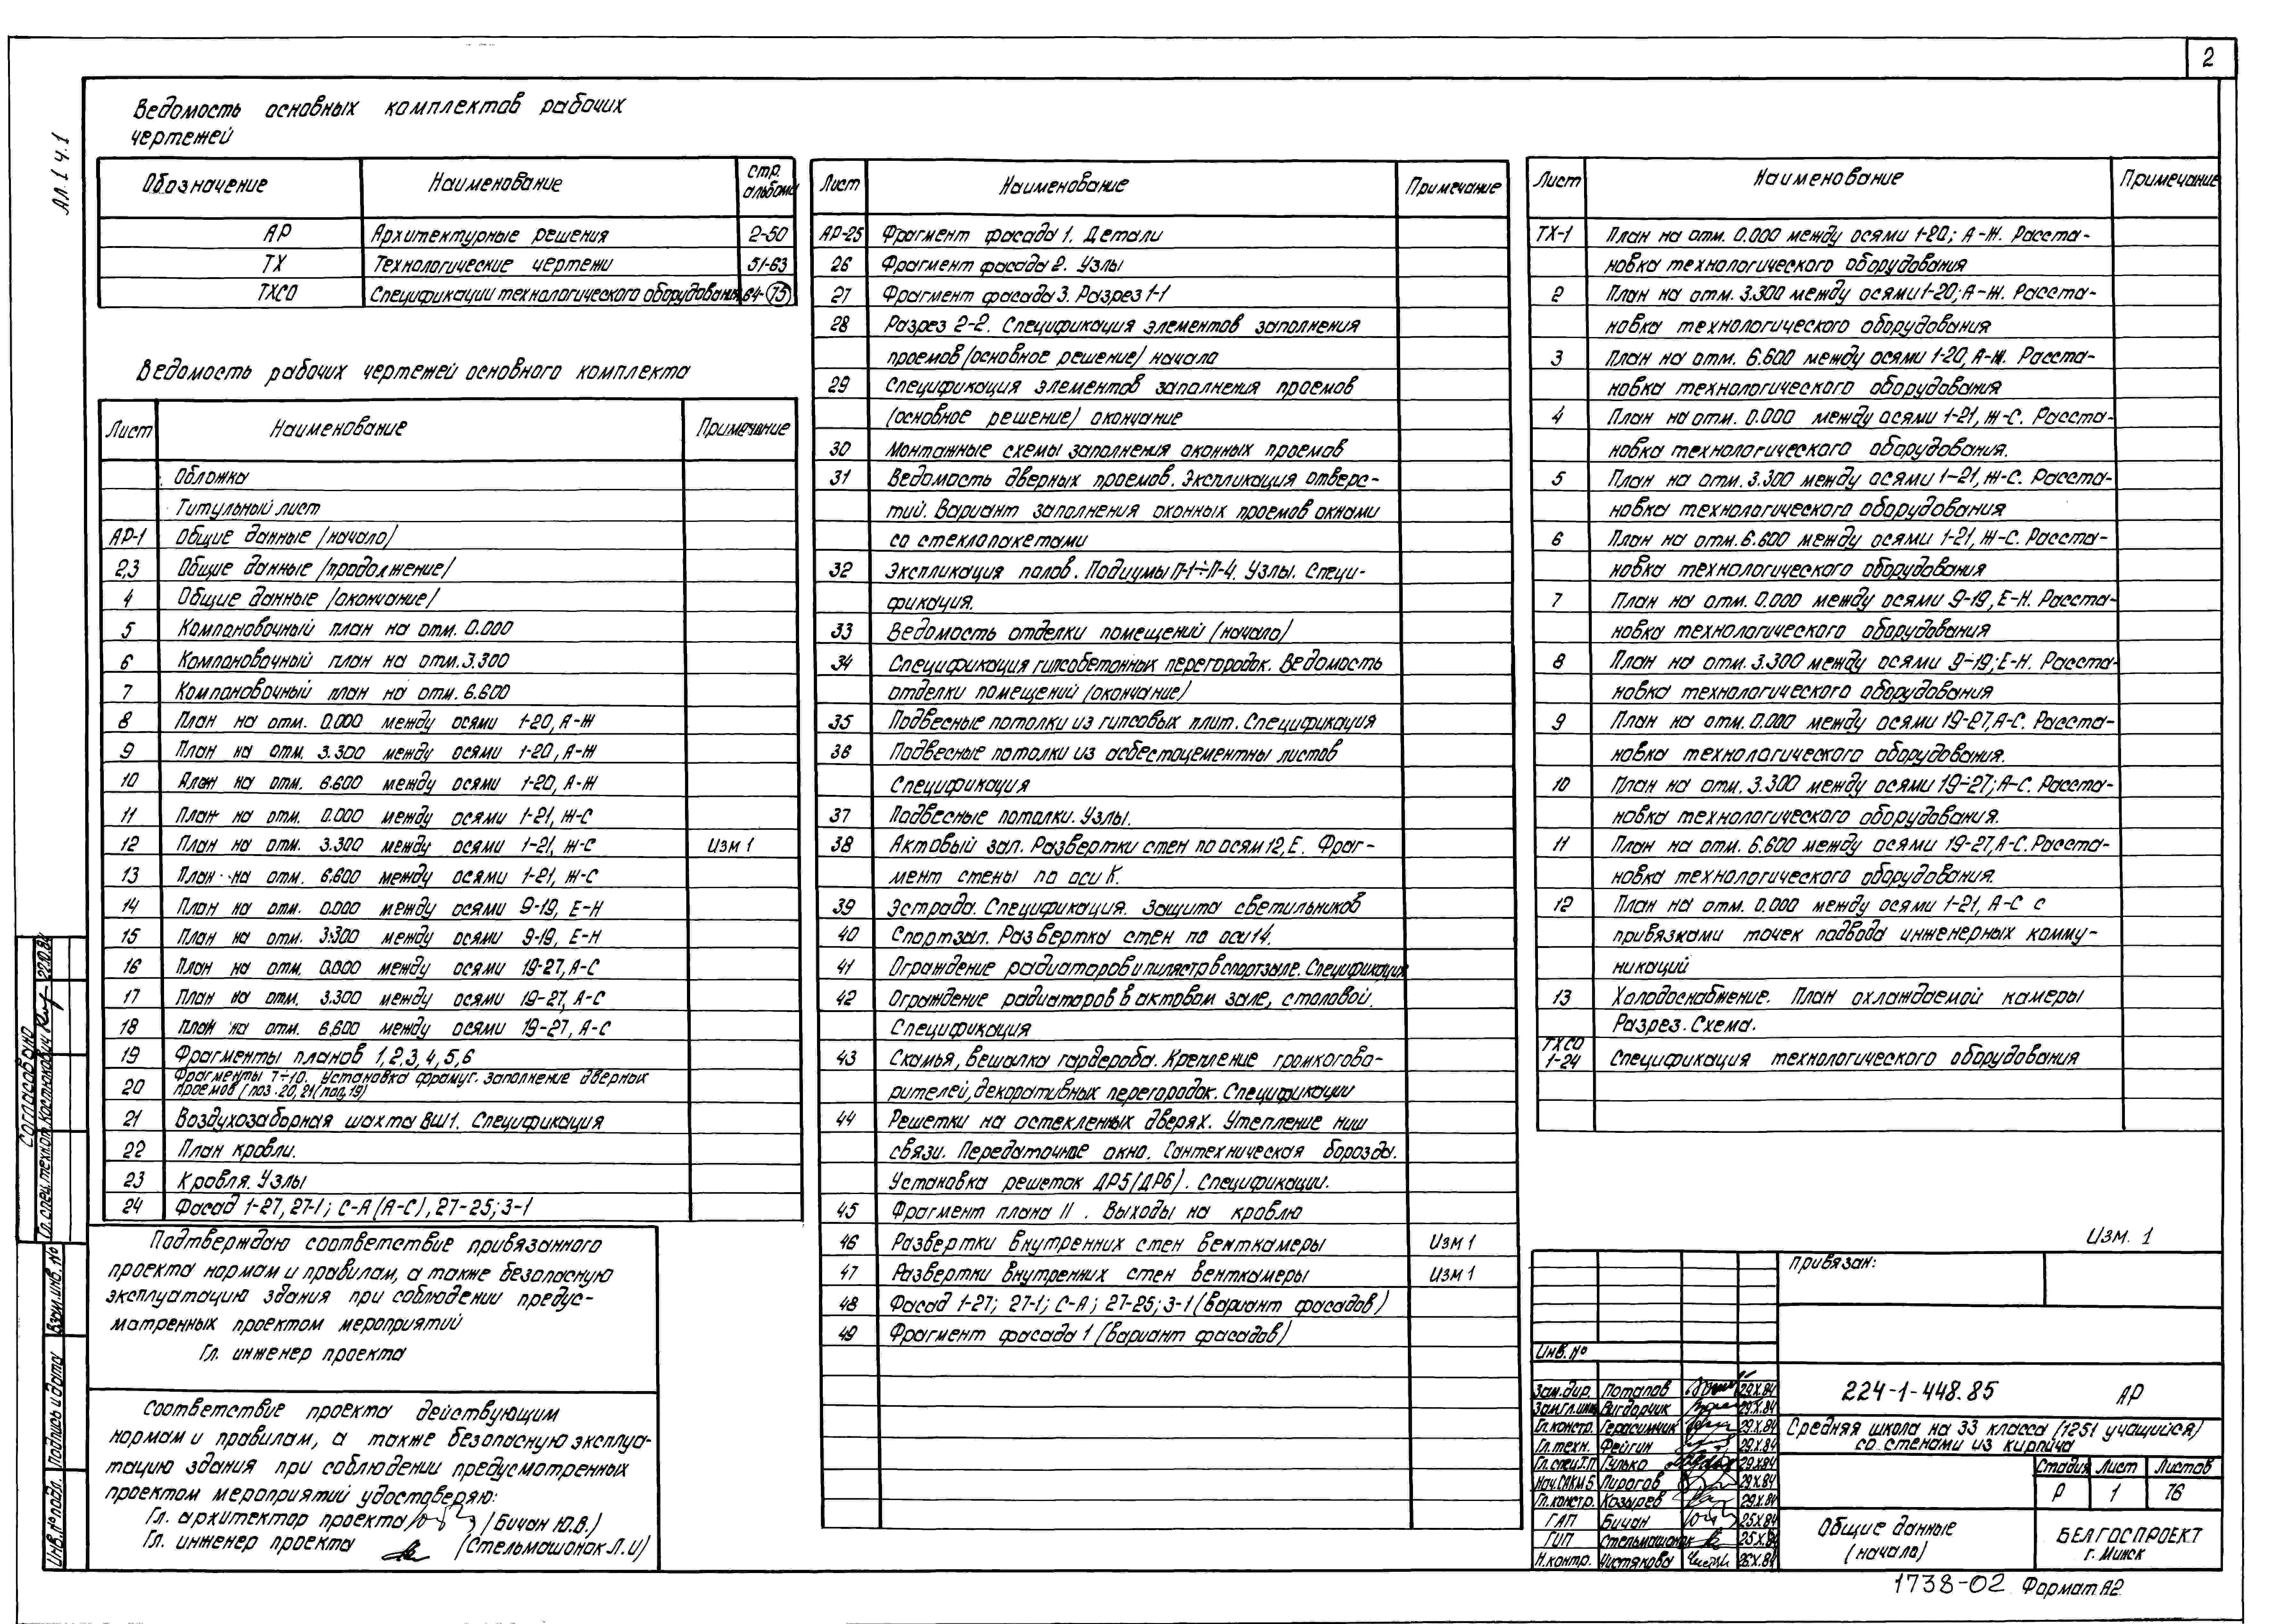 2
Ал.1 ч.1
Ведомость основных комплектов рабочих
чертежей
Обозначение Наименование Стр. альбома
АР Архитектурные решения 2-50
ТХ Технологические чертежи 51-63
ТХСО Спецификации технологического оборудования 64-75
Ведомость рабочих чертежей основного комплекта
Лист Наименование Примечание
Обложка
Титульный лист
АР-1 Общие данные (начало)
2,3 Общие данные (продолжение)
4 Общие данные (окончание)
5 Компановочный план на отм. 0.000
6 Компановочный план на отм. 3.300
7 Компановочный план на отм. 6.600
8 План на отм. 0.000 между осями 1-20, А-Ж
9 План на отм. 3.300 между осями 1-20, А-Ж
10 План на отм. 6.600 между осями 1-20, А-Ж
11 План на отм. 0.000 между осями 1-21, Ж-С
12 План на отм. 3.300 между осями 1-21, Ж-С Изм 1
13 План на отм. 6.600 между осями 1-21, Ж-С
14 План на отм. 0.000 между осями 9-19, Е-Н
15 План на отм. 3.300 между осями 9-19, Е-Н
16 План на отм. 0.000 между осями 19-27, А-С
17 План на отм. 3.300 между осями 19-27, А-С
18 План на отм. 6.600 между осями 19-27, А-С
19 Фрагменты планов 1,2,3,4,5,6
20 Фрагменты 7÷10. Установка фрамуг. Заполнение дверных
проемов (поз.20, 21(поз.19)
21 Воздухозаборная шахта ВШ1. Спецификация
22 План кровли.
23 Кровля. Узлы
24 Фасад 1-27, 27-1; С-А (А-С), 27-25; 3-1
Подтверждаю соответствие привязанного
проекта нормам и правилам, а также безопасную
эксплуатацию здания при соблюдении предус-
матренных проектом мероприятий
Гл. инженер проекта
Соответствие проекта действующим
нормам и правилам, а также безопасную эксплуа-
тацию здания при соблюдении предусмотренных
проектом мероприятий удостоверяю:
Гл. архитектор проекта (Бичан Ю.В.)
Гл. инженер проекта (Стельмашонок Л.И)
Лист Наименование Примечание
АР-25 Фрагмент фасада 1. Детали
26 Фрагмент фасада 2. Узлы
27 Фрагмент фасада 3. Разрез 1-1
28 Разрез 2-2. Спецификация элементов заполнения
проемов (основное решение) начало
29 Спецификация элементов заполнения проемов
(основное решение) окончание
30 Монтажные схемы заполнения оконных проемов
31 Ведомость дверных проемов. Экспликация отверс-
тий. Вариант заполнения оконных проемов окнами
со стеклопакетами
32 Экспликация полов. Подиумы П-1÷П-4. Узлы. Специ-
фикация.
33 Ведомость отделки помещений (начало)
34 Спецификация гипсобетонных перегородок. Ведомость
отделки помещений (окончание)
35 Подвесные потолки из гипсовых плит. Спецификация
36 Подвесные потолки из асбестоцементны листов
Спецификация
37 Подвесные потолки. Узлы.
38 Актовый зал. Развертки стен по осям 12, Е. Фраг-
мент стены по оси К.
39 Эстрада. Спецификация. Защита светильников
40 Спортзал. Развертка стен по оси 14.
41 Ограждение радиаторов и пилястр в спортзале. Спецификация
42 Ограждение радиаторов в актовом зале, столовой.
Спецификация
43 Скамья, вешалка гардероба. Крепление громкогово-
рителей, декоративных перегородок. Спецификации
44 Решетки на остекленных дверях. Утепление ниш
связи. Передаточное окно. Сантехническая борозды.
Установка решеток ДР5(ДР6). Спецификации.
45 Фрагмент плана 11. Выходы на кровлю
46 Развертки внутренних стен венткамеры Изм 1
47 Развертки внутренних стен венткамеры Изм 1
48 Фасад 1-27; 27-1; С-А; 27-25; 3-1 (вариант фасадов)
49 Фрагмент фасада 1 (вариант фасадов)
Лист Наименование Примечание
ТХ-1 План на отм. 0.000 между осями 1-20; А-Ж. Расста-
новка технологического оборудования
2 План на отм. 3.300 между осями 1-20; А-Ж. Расста-
новка технологического оборудования
3 План на отм. 6.600 между осями 1-20, А-Ж. Расста-
новка технологического оборудования
4 План на отм. 0.000 между осями 1-21, Ж-С. Расста-
новка технологического оборудования.
5 План на отм. 3.300 между осями 1-21, Ж-С. Расста-
новка технологического оборудования
6 План на отм. 6.600 между осями 1-21, Ж-С. Расста-
новка технологического оборудования
7 План на отм. 0.000 между осями 9-19, Е-Н. Расста-
новка технологического оборудования
8 План на отм. 3.300 между осями 9-19; Е-Н. Расста-
новка технологического оборудования
9 План на отм. 0.000 между осями 19-27, А-С. Расста-
новка технологического оборудования.
10 План на отм. 3.300 между осями 19÷27; А-С. Расста-
новка технологического оборудования.
11 План на отм. 6.600 между осями 19-27, А-С. Расста-
новка технологического оборудования.
12 План на отм. 0.000 между осями 1-21, А-С с
привязками точек подвода инженерных комму-
никаций
13 Холодоснабжение. План охлаждаемой камеры
Разрез. Схема.
ТХСО 1-24 Спецификация технологического оборудования
Изм. 1
Привязан:
Инв. №
Зам.дир. Потапов 29.X.84
Зам.гл.инж Вигдорчик 29.X.84
Гл.констр. Герасимчик 29.X.84
Гл.техн. Фейгин 29.X.84
Гл.спец.Т.П Гулько 29.X.84
Нач.САКМ5 Пирогов 29.X.84
Гл.констр. Козырев 29.X.84
ГАП Бичан 25.X.84
ГИП Стельмашонок 25.X.84
Н.контр. Чистякова 26.X.84
224-1-448.85 АР
Средняя школа на 33 класса (1251 учащийся)
со стенами из кирпича
Стадия Лист Листов
Р 1 76
Общие данные
(начало)
БЕЛГОСПРОЕКТ
г. Минск
1738-02 Формат А2
Согласовано
Гл.спец.технол. Костюкович 22.10.84
Взам.инв.№
Подпись и дата
Инв.№ подл.